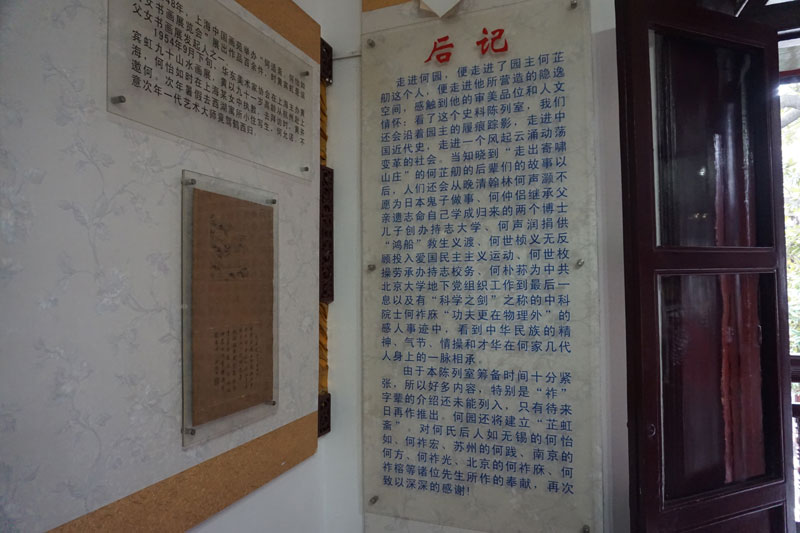 父女书画展览会”展出作品百余件，
父女书画展发起人之一。
1954年9月下旬，华东美术家协会在上海主办黄
宾虹九十山水画展，黄以九十一岁高龄
海，何怡如时在上海
邀何，次年暑假去西湖
意次年一代艺术大师竟驾鹤西归。
后记
走进何园，便走进了园主何芷
舠这个人，便走进他所营造的隐逸
空间，感触到他的审美品位和人文
情怀；看了这个史料陈列室，我们
还会沿着园主的履痕踪影，走进中
国近代史，走进一个风起云涌动荡
变革的社会。当知晓到“走出寄啸
山庄”的何芷舠的后辈们的故事以
后，人们还会从晚清翰林何声灏不
愿为日本鬼子做事、何仲侣继承父
亲遗志命自己学成归来的两个博士
儿子创办持志大学、何声润捐供
“鸿船”救生义渡、何世桢义无反
顾投入爱国民主主义运动、何世枚
操劳承办持志校务、何朴荪为中共
北京大学地下党组织工作到最后一
息以及有“科学之剑”之称的中科
院士何祚庥“功夫更在物理外”的
感人事迹中，看到中华民族的精
神、气节、情操和才华在何家几代
人身上的一脉相承。
由于本陈列室筹备时间十分紧
张，所以好多内容，特别是“祚”
字辈的介绍还未能列入，只有待来
日再作推出。何园还将建立“芷虹
斋”，对何氏后人如无锡的何怡
如、何祚宏、苏州的何践、南京的
何方、何祚光、北京的何祚庥、何
祚榕等诸位先生所作的奉献，再次
致以深深的感谢！